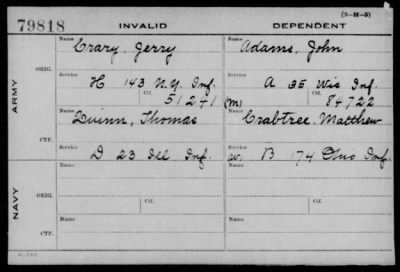 (3-H-5)
79818 INVALID DEPENDENT
Name Name
Crary, Jerry Adams, John
ORIG. Service Service
H 143 N.Y. Inf. A 35 Wis Inf.
Ctf. 51241 (m) Ctf. 84722
ARMY
Name Name
Quinn, Thomas Crabtree Matthew
CTF. Service Service
D 23 Ill Inf. B 174 Ohio Inf.
Name Name
ORIG. Service Service
Ctf. Ctf.
NAVY
Name Name
CTF. Service Service